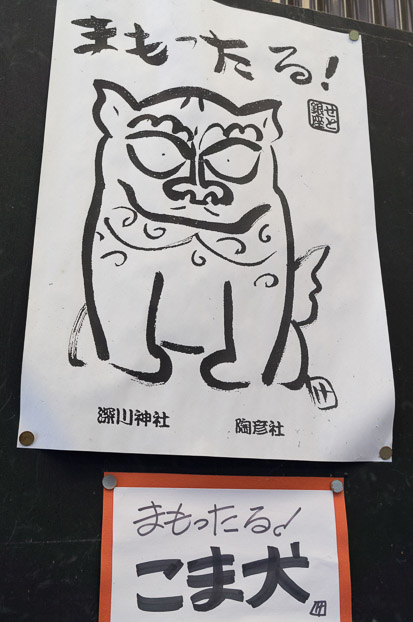 まもったる!
せと
銀座
深川神社
陶彦社
まもったる!
こま犬